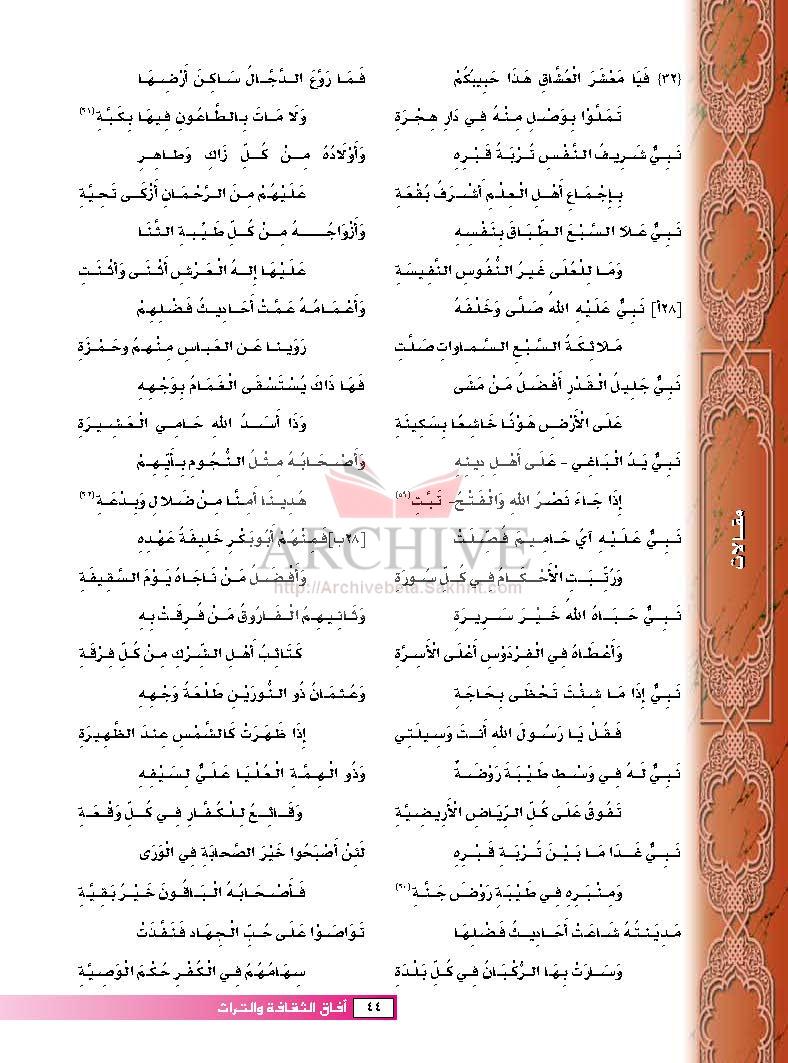 {٣٢} فَيَا مَعْشَرَ الْعُشَّاقِ هَذَا حَبِيبُكُمْ
تَمَلَّوْا بِوَصْلٍ مِنْهُ فِي دَارِ هِجْرَةِ
نَبِيٌّ شَرِيفُ النَّفْسِ تُرْبَةُ قَبْرِهِ
بِإِجْمَاعِ أَهْلِ الْعِلْمِ أَشْرَفُ بُقْعَةِ
نَبِيٌّ عَلاَ السَّبْعَ الطِّبَاقَ بِنَفْسِهِ
وَمَا لِلْعُلَى غَيرُ النُّفُوسِ النَّفِيسَةِ
[٢٨أ] نَبِيٌّ عَلَيْهِ اللهُ صَلَّى وَخَلْفَهُ
مَلاَئِكَةُ السَّبْعِ السَّماوَاتِ صَلَّتِ
نَبِيٌّ جَلِيلُ الْقَدْرِ أَفْضَلُ مَنْ مَشَى
عَلَى الْأَرْضِ هَوْنًا خَاشِعًا بِسَكِينَةِ
نَبِيٌّ يَدُ الْبَاغِي - عَلَى أَهْلِ دِينِهِ
إِذَا جَاءَ نَصْرُ اللهِ وَالْفَتْحُ- تَبَّتِ(٥٩)
نَبِيٌّ عَلَيْهِ آيُ حَامِيمَ فُصِّلَتْ
وَرُتِّبَتِ الْأَحْكَامُ فِي كُلِّ سُورَةِ
نَبِيٌّ حَبَاهُ اللهُ خَيْرَ سَرِيرَةِ
وَأَعْطَاهُ فِي الْفِرْدَوْسِ أَعْلَى الْأَسِرَّةِ
نَبِيٌّ إِذَا مَا شِئْتَ تَحْظَى بِحَاجَةِ
فَقُلْ يَا رَسُولَ اللهِ أَنتَ وَسِيلَتِي
نَبِيٌّ لَهُ فِي وَسْطِ طَيْبَةَ رَوْضَةٌ
تَفُوقُ عَلَى كُلِّ الرِّيَاضِ الْأَرِيضِيَّةِ
نَبِيٌّ غَدَا مَا بَيْنَ تُرْبَةِ قَبْرِهِ
وَمِنْبَرِهِ فِي طَيْبَةٍ رَوْضَ جَنَّةِ(٦٠)
مَدِينَتُهُ شَاعَتْ أَحَادِيثُ فَضْلِهَا
وَسَارَتْ بِهَا الرُّكْبَانُ فِي كُلِّ بَلْدَةِ
فَمَا رَوَّعَ الدَّجَّالُ سَاكِنَ أَرْضِهَا
وَلَا مَاتَ بِالطَّاعُونِ فِيهَا بِكَبَّةِ(٦١)
وَأَوْلَادُهُ مِنْ كُلِّ زَاكٍ وَطَاهِرٍ
عَلَيْهُمْ مِنَ الرَّحْمَانِ أَزْكَى تَحِيَّةِ
وَأَزْوَاجُهُ مِنْ كُلِّ طَيِّبةِ الثَّنَا
عَلَيْهَا إِلهُ الْعَرْشِ أَثْنَى وَأَثْنَتِ
وَأَعْمَامُهُ عَمَّتْ أَحَادِيثُ فَضْلِهِمْ
رَوَيْنَا عَنِ العَبَاسِ مِنْهُم وحَمْزَةِ
فَهَا ذَاكَ يُسْتَسْقَى الْغَمَامُ بِوَجْهِهِ
وَذَا أَسَدُ اللهِ حَامِي الْعَشِيرَةِ
وَأَصْحَابُهُ مِثْلُ النُّجُومِ بِأَيِّهِمْ
هُدِينَا أَمِنَّا مِنْ ضَلَالٍ وَبِدْعَةِ(٦٢)
[٢٨ب]فَمِنْهُمْ أَبُوبَكْرٍ خَلِيفَةُ عَهْدِهِ
وَأَفْضَلُ مَنْ نَاجَاهُ يَوْمَ السَّقِيفَةِ
وَثَانِيهِمُ الْفَارُوقُ مَنْ فُرِقَتْ بِهِ
كَتَائِبُ أَهْلِ الشِّرْكِ مِنْ كُلِّ فِرْقَةِ
وَعُثْمَانُ ذُو النُّورَيْنِ طَلْعَةُ وَجْهِهِ
إِذَا ظَهَرَتْ كَالشَّمْسِ عِندَ الظَّهِيرَةِ
وَذُو الْهِمَّةِ الْعُلْيَا عَلَيٌّ لِسَيْفِهِ
وَقَائِعُ لِلْكُفَّارِ فِي كُلِّ وَقْعَةِ
لَئِنْ أَصْبَحُوا خَيْرَ الصَّحابَةِ فِي الْوَرَى
فَأَصْحَابُهُ الْبَاقُونَ خَيْرُ بَقِيَّةِ
تَوَاصَوْا عَلَى حُبِّ الْجِهَادِ فَنَفَّذَتْ
سِهَامُهُمُ فِي الْكُفْرِ حُكْمَ الْوَصِيَّةِ
مقالات
ARCHIVE
http://Archivebeta.Sakhrit.com
٤٤ آفاق الثقافة والتراث